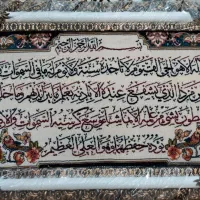 بسم الله الرحمن الرحيم
الله لا إله إلا هو الحي القيوم لا تأخذه سنة ولا نوم له ما في السموات
من ذا الذي يشفع عنده إلا بإذنه يعلم ما بين أيديهم وما خلفهم
يحيطون بشيء من علمه إلا بما شاء وسع كرسيه السموات والأ
يؤده حفظهما وهو العلي العظيم